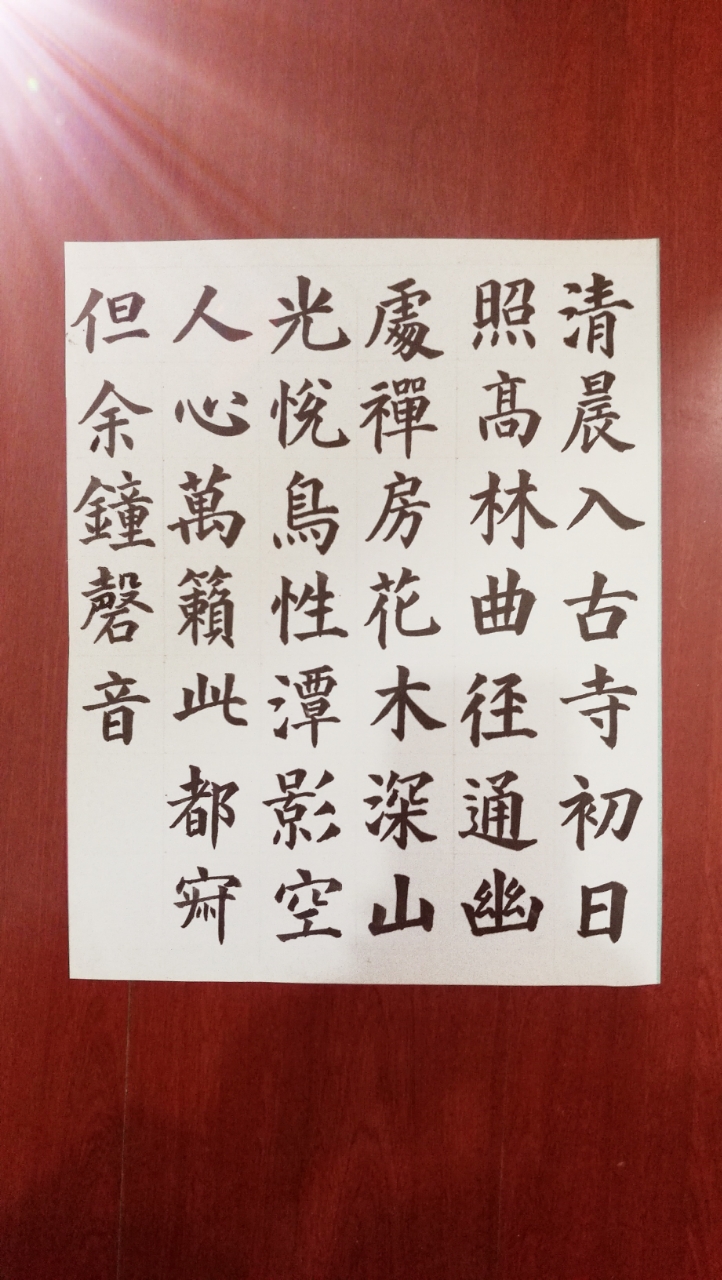 清晨入古寺初日
照高林曲徑通幽
處禪房花木深山
光悅鳥性潭影空
人心萬籟此都寂
但余鐘磬音